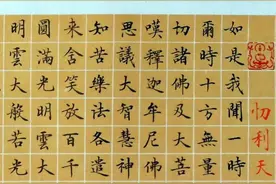 忉利天
如是我聞一時
爾時十方無量
切諸佛及大菩
嘆釋迦牟尼佛
思議大智慧神
知苦樂法各遣
來含笑放百千
圓滿光明雲大
明雲大般若光